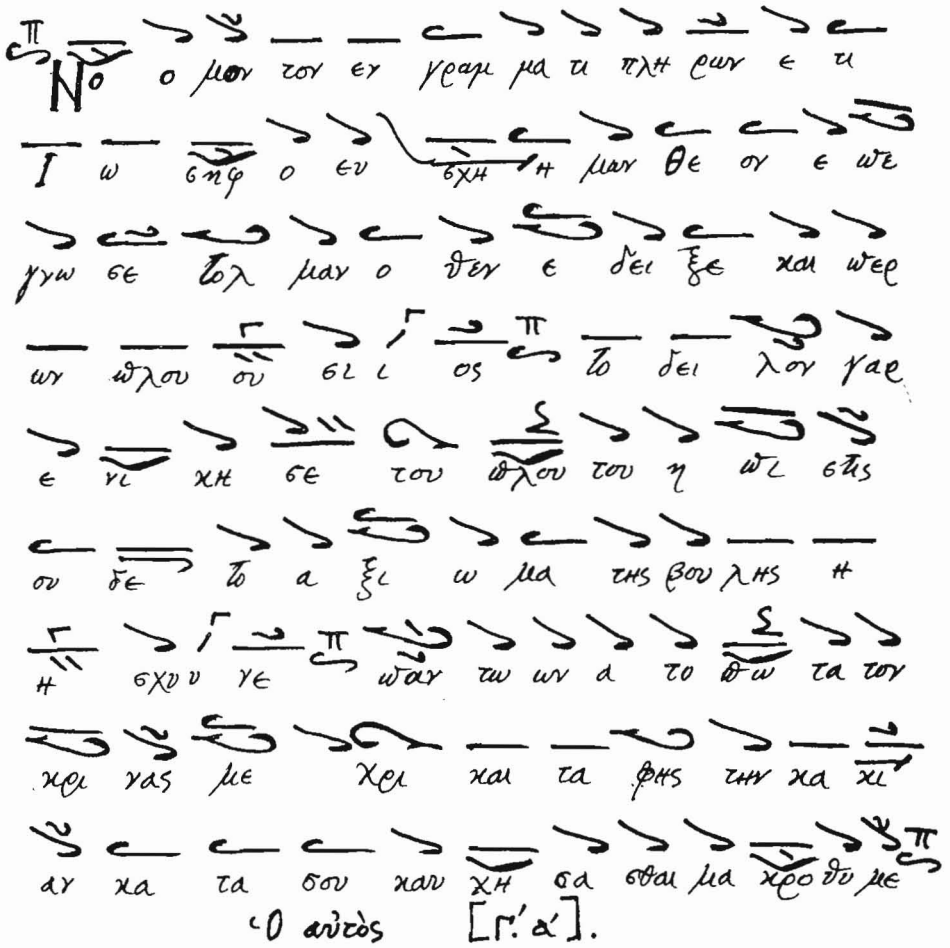 Νο ο μον τον εν γραμ μα τι πλη ρων ε τι
Ι ω σηφ ο ευ σχη η μων θε ον ε πε
γνω σε τολ μαν ο θεν ε δει ξε και περ
ων πλου ου σι ι ος το δει λον γαρ
ε νι κη σε του πλου του η πι στις
ου δε το α ξι ω μα της βουλης η
η σχυ υ νε παν τω ων α το πω τα τον
κρι νας με χρι και τα φης την κα κι
αν κα τα σου καυ χη σα σθαι μα κρο θυ με
Ὁ αὐτὸς [Γ.΄ α΄].